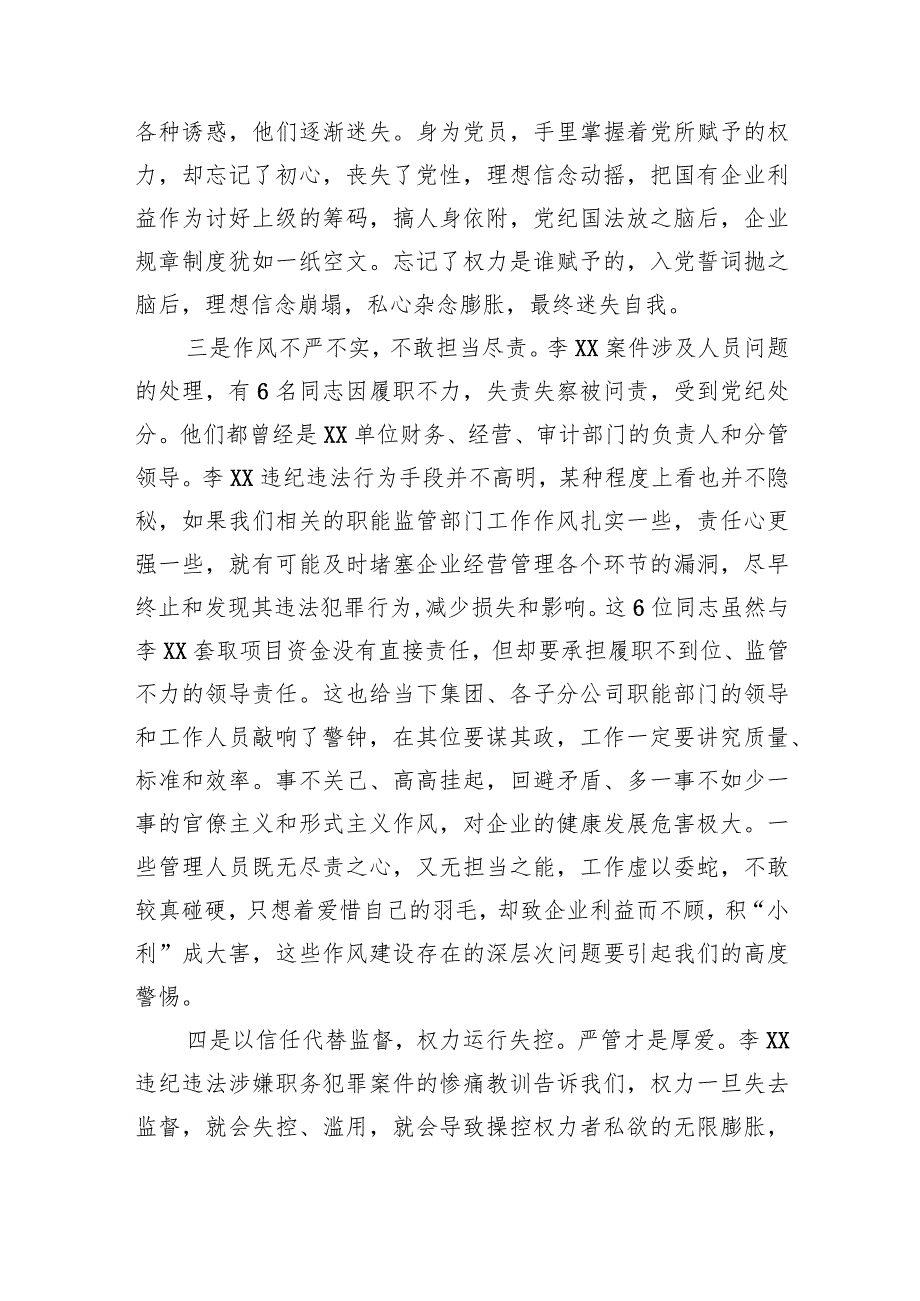 各种诱惑，他们逐渐迷失。身为党员，手里掌握着党所赋予的权
力，却忘记了初心，丧失了党性，理想信念动摇，把国有企业利
益作为讨好上级的筹码，搞人身依附，党纪国法放之脑后，企业
规章制度犹如一纸空文。忘记了权力是谁赋予的，入党誓词抛之
脑后，理想信念崩塌，私心杂念膨胀，最终迷失自我。
三是作风不严不实，不敢担当尽责。李 XX 案件涉及人员问题
的处理，有 6 名同志因履职不力，失责失察被问责，受到党纪处
分。他们都曾经是 XX 单位财务、经营、审计部门的负责人和分管
领导。李 XX 违纪违法行为手段并不高明，某种程度上看也并不隐
秘，如果我们相关的职能监管部门工作作风扎实一些，责任心更
强一些，就有可能及时堵塞企业经营管理各个环节的漏洞，尽早
终止和发现其违法犯罪行为,减少损失和影响。这 6 位同志虽然与
李 XX 套取项目资金没有直接责任，但却要承担履职不到位、监管
不力的领导责任。这也给当下集团、各子分公司职能部门的领导
和工作人员敲响了警钟，在其位要谋其政，工作一定要讲究质量、
标准和效率。事不关己、高高挂起，回避矛盾、多一事不如少一
事的官僚主义和形式主义作风，对企业的健康发展危害极大。一
些管理人员既无尽责之心，又无担当之能，工作虚以委蛇，不敢
较真碰硬，只想着爱惜自己的羽毛，却致企业利益而不顾，积“小
利”成大害，这些作风建设存在的深层次问题要引起我们的高度
警惕。
四是以信任代替监督，权力运行失控。严管才是厚爱。李 XX
违纪违法涉嫌职务犯罪案件的惨痛教训告诉我们，权力一旦失去
监督，就会失控、滥用，就会导致操控权力者私欲的无限膨胀，